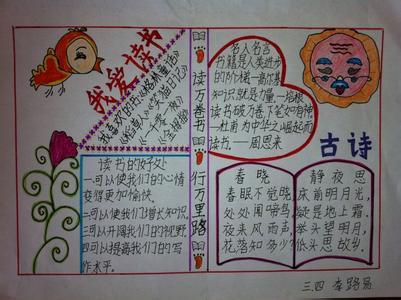 我爱读书
我喜欢的书《格林童话》
读书的好处
一可以使我们的心情
变得更加愉快。
二可以使我们增长知识。
三可以开阔我们的视野。
四可以提高我们的写
作水平。
读万卷书
行万里路
名人名言
书籍是人类进步
的阶梯—高尔基
知识就是力量—培根
读书破万卷,下笔如有神。
—杜甫 为中华之崛起而
读书。—周恩来
古诗
春晓
春眠不觉晓
处处闻啼鸟
夜来风雨声,
花落知多少?
静夜思
床前明月光,
疑是地上霜.
举头望明月,
低头思故乡。
三.四 李路易